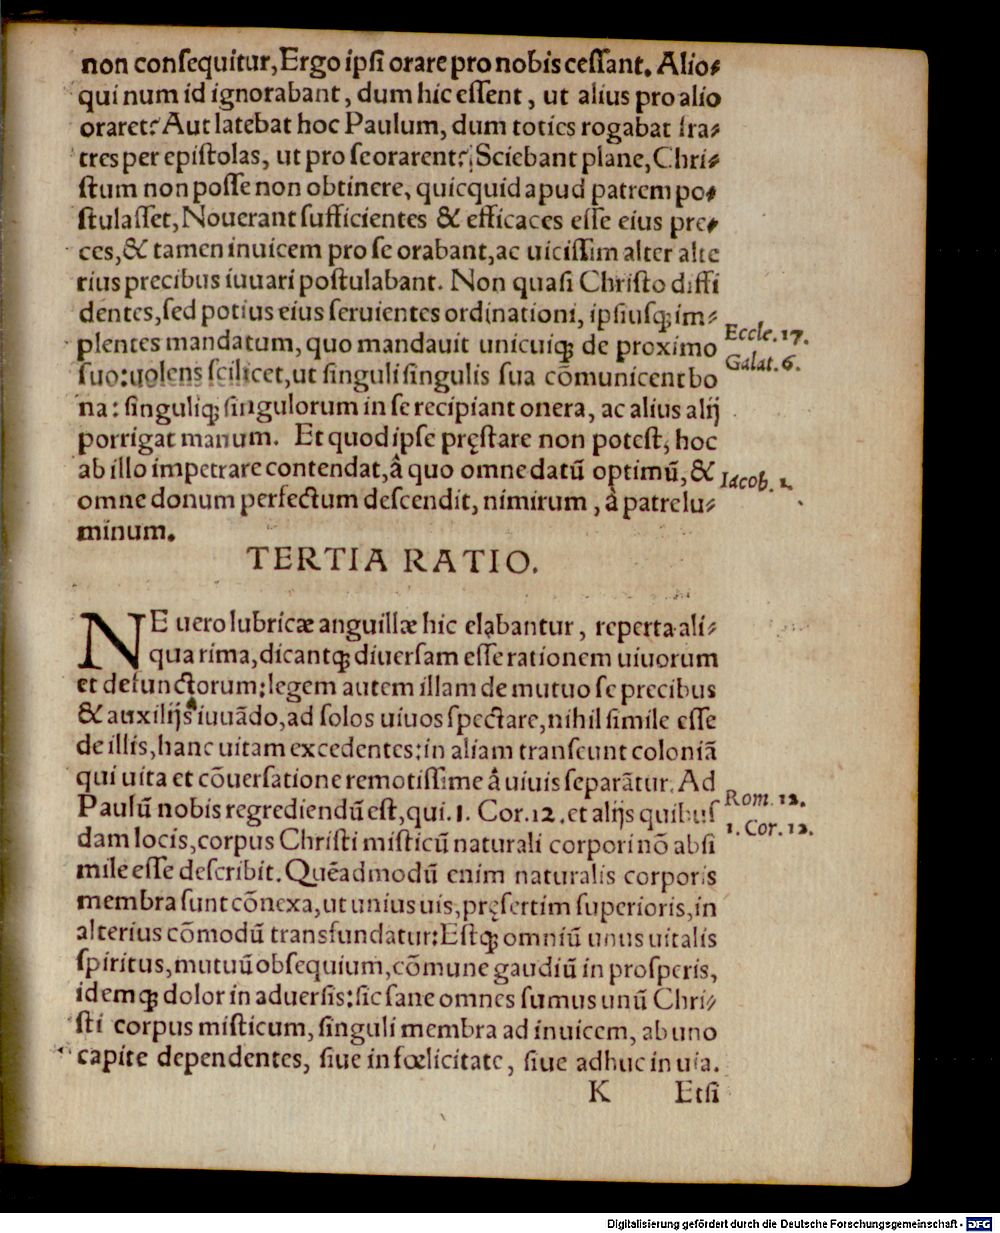 non conſequitur, Ergo ipſi orare pro nobis ceſſant. Alio⸗
qui num id ignorabant, dum hic eſſent, ut alius pro alio
oraret? Aut latebat hoc Paulum, dum toties rogabat fra⸗
tres per epiſtolas, ut pro ſe orarent? Sciebant plane, Chri⸗
ſtum non poſſe non obtinere, quicquid apud patrem po⸗
ſtulaſſet, Nouerant ſufficientes & efficaces eſſe eius pre⸗
ces, & tamen inuicem pro ſe orabant, ac uiciſſim alter alte
rius precibus iuuari poſtulabant. Non quaſi Chriſto diffi
dentes, ſed potius eius ſeruientes ordinationi, ipſiuſq; im⸗
plentes mandatum, quo mandauit unicuiq; de proximo
Eccle. 17.
ſuo: uolens ſcilicet, ut ſinguli ſingulis ſua cōmunicent bo
Galat. 6.
na: ſinguliq; ſingulorum in ſe recipiant onera, ac alius alij
porrigat manum. Et quod ipſe pręſtare non poteſt, hoc
ab illo impetrare contendat, â quo omne datū optimū, &
Iacob. 1.
omne donum perfectum deſcendit, nimirum, à patre lu⸗
minum.
TERTIA RATIO.
NE uero lubricæ anguillæ hic elabantur, reperta ali⸗
qua rima, dicantq; diuerſam eſſe rationem uiuorum
et defunctorum: legem autem illam de mutuo ſe precibus
& auxilijs iuuādo, ad ſolos uiuos ſpectare, nihil ſimile eſſe
de illis, hanc uitam excedentes: in aliam tranſeunt coloniā
qui uita et cōuerſatione remotiſſime â uiuis ſeparātur. Ad
Paulū nobis regrediendū eſt, qui. 1. Cor. 12. et alijs quibuſ
Rom. 12.
dam locis, corpus Chriſti miſticū naturali corpori nō abſi
1. Cor. 12.
mile eſſe deſcribit. Quēadmodū enim naturalis corporis
membra ſunt cōnexa, ut unius uis, pręſertim ſuperioris, in
alterius cōmodū transfundatur: Eſtq; omniū unus uitalis
ſpiritus, mutuū obſequium, cōmune gaudiū in proſperis,
idemq; dolor in aduerſis: ſic ſane omnes ſumus unū Chri⸗
ſti corpus miſticum, ſinguli membra ad inuicem, ab uno
capite dependentes, ſiue in fœlicitate, ſiue adhuc in uia.
K Etſi
Digitalisierung gefördert durch die Deutsche Forschungsgemeinschaft - DFG